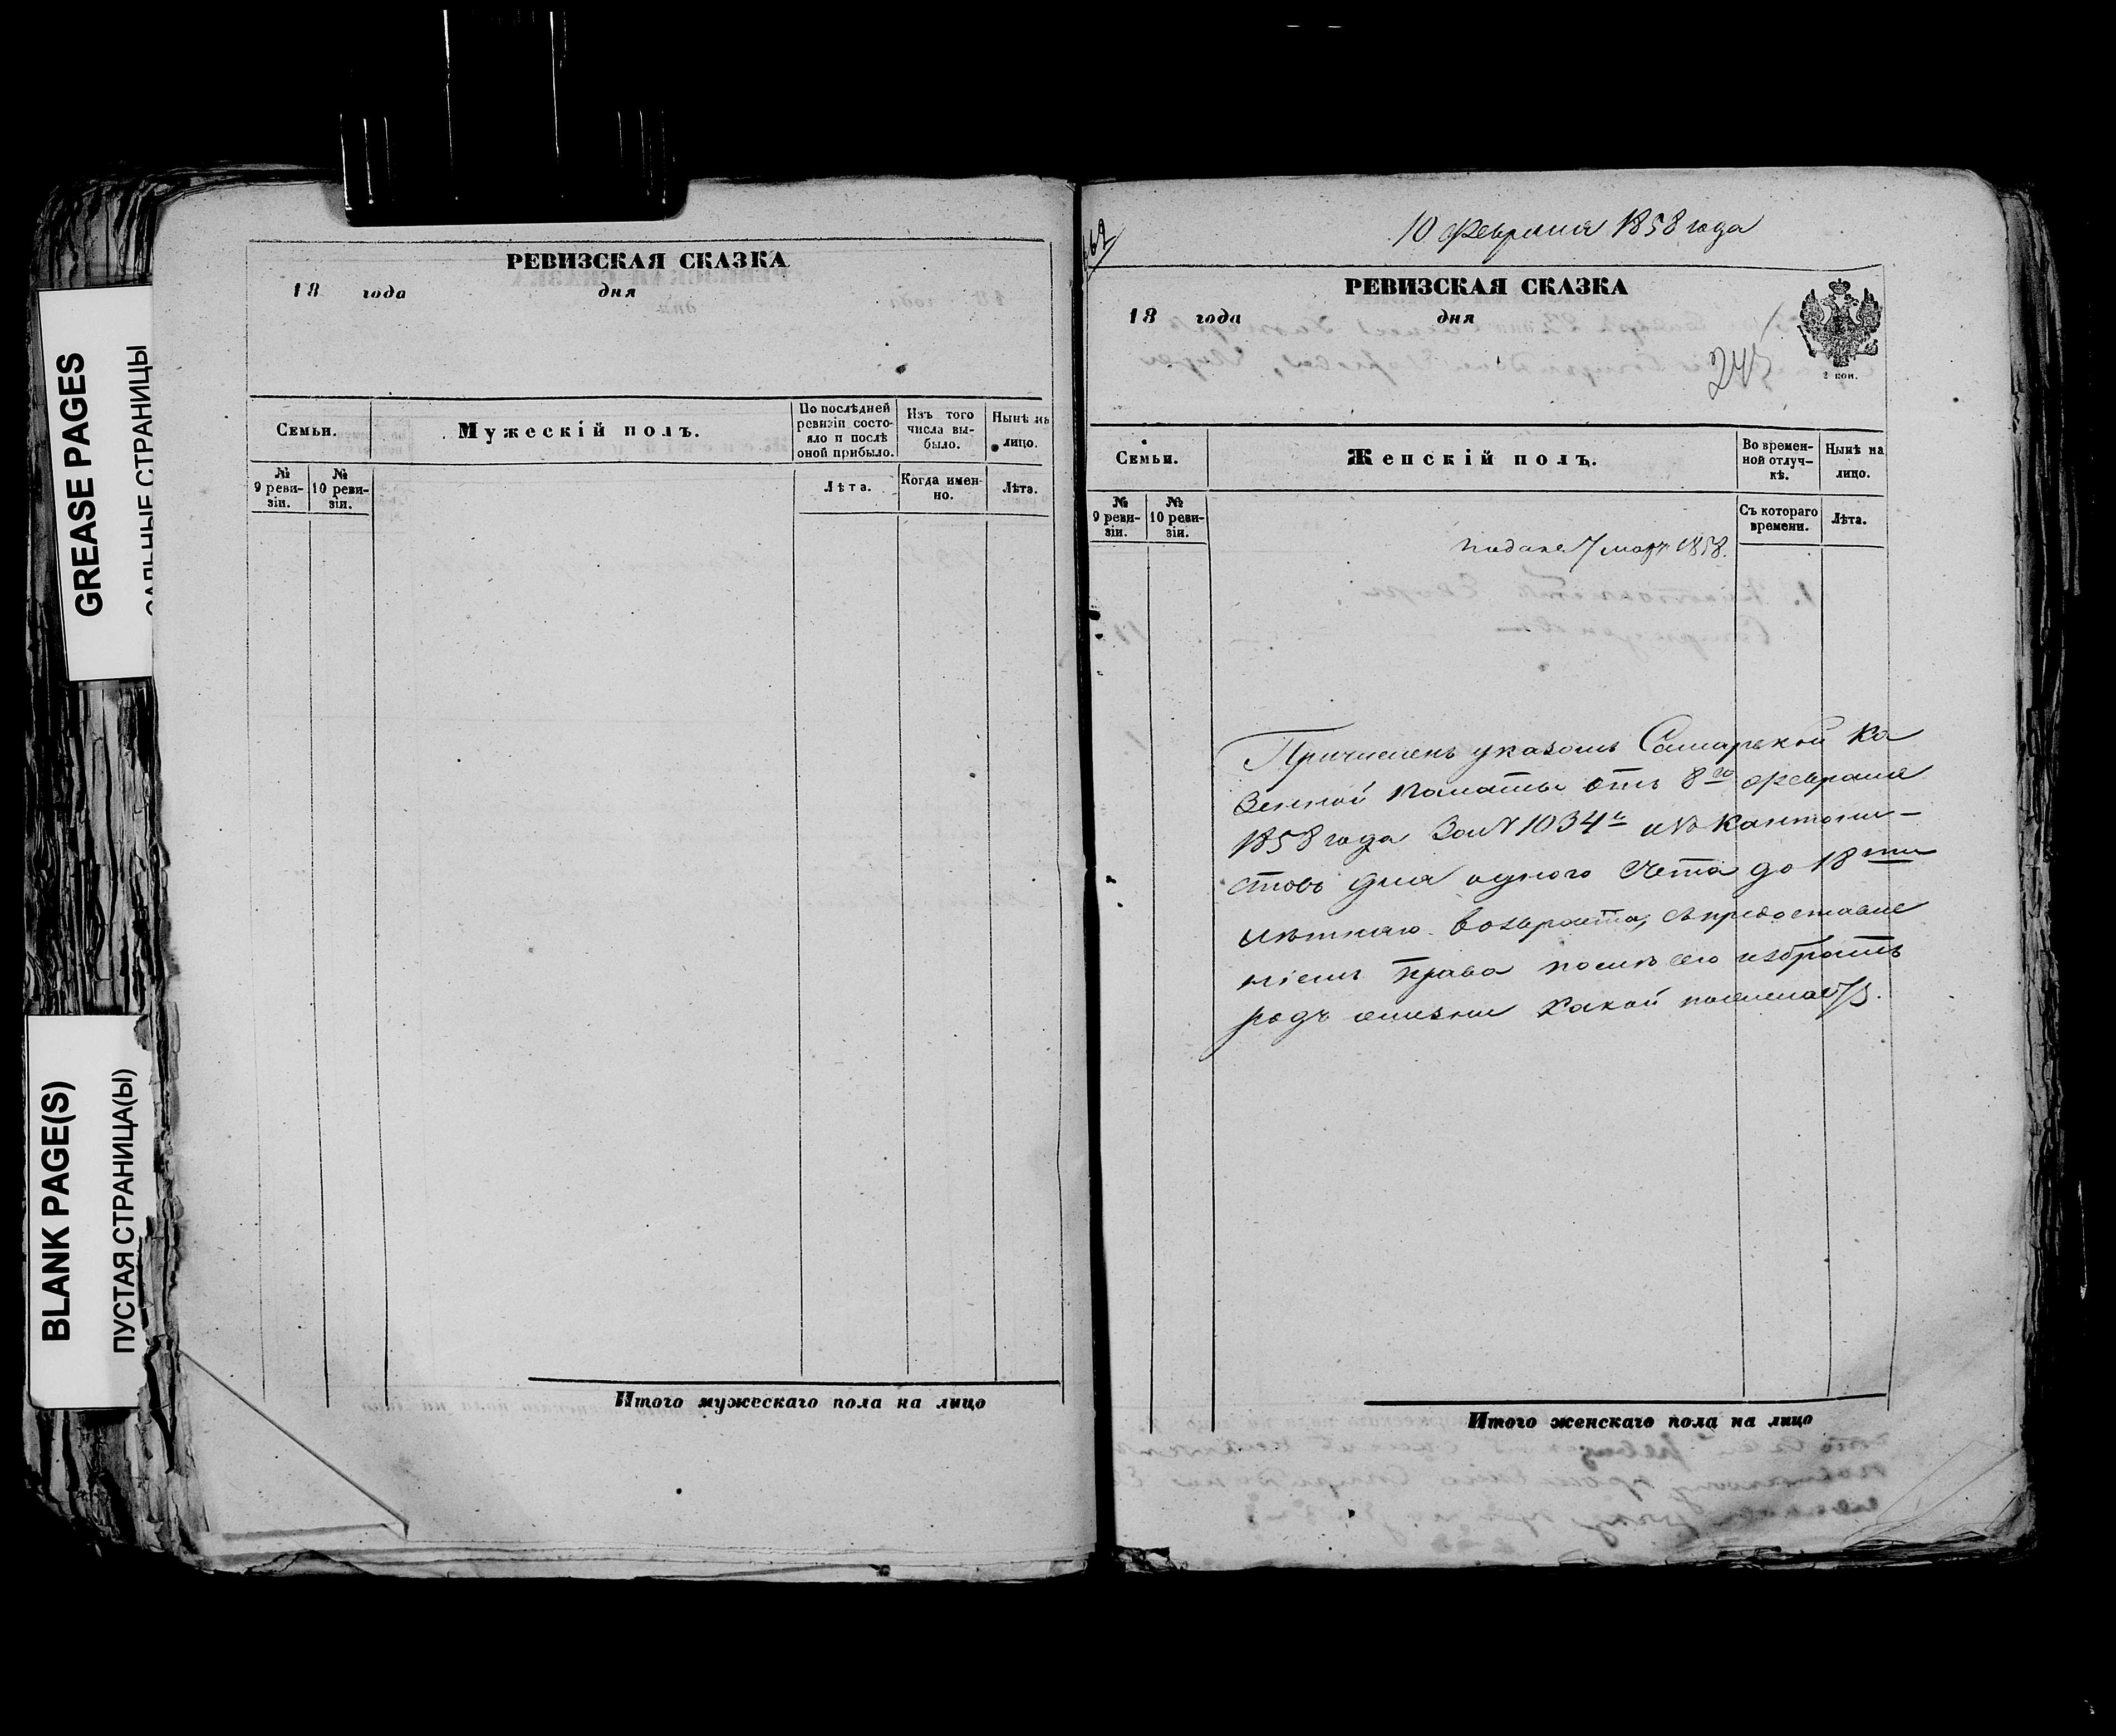 GREASE PAGES
САЛЬНЫЕ СТРАНИЦЫ
BLANK PAGE(S)
ПУСТАЯ СТРАНИЦА(Ы)
РЕВИЗСКАЯ СКАЗКА
18 года дня
Семьи.
Мужескій полъ.
По послѣдней ревизіи состояло и послѣ оной прибыло.
Изъ того числа выбыло.
Нынѣ на лицо.
№ 9 ревизіи.
№ 10 ревизіи.
Лѣта.
Когда именно.
Лѣта.
Итого мужескаго пола на лицо
10 февраля 1858 года
РЕВИЗСКАЯ СКАЗКА
18 года дня
2 коп.
Семьи.
Женскій полъ.
Во временной отлучкѣ.
Нынѣ на лицо.
№ 9 ревизіи.
№ 10 ревизіи.
Съ котораго времени.
Лѣта.
Подана 7 март 1858.
Причисленъ указомъ Самарской Ка
зенной Палаты отъ 8го февраля
1858 года за № 1034 изъ кантони-
стовъ для одного счета до 18ти
лѣтняго возраста, съ предоставле
ніемъ права послѣ сего избрать
родъ жизни какой пожелаетъ.
Итого женскаго пола на лицо